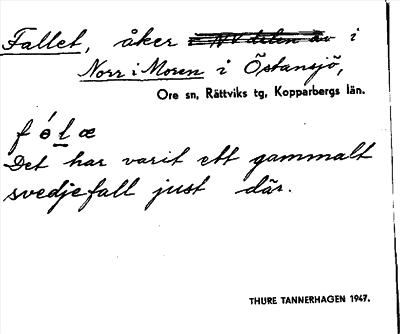 Fallet, åker i NV delen av i
Norr i Moren i Östansjö,
Ore sn, Rättviks tg, Kopparbergs län.
f ó l æ
Det har varit ett gammalt
svedjefall just där.
THURE TANNERHAGEN 1947.